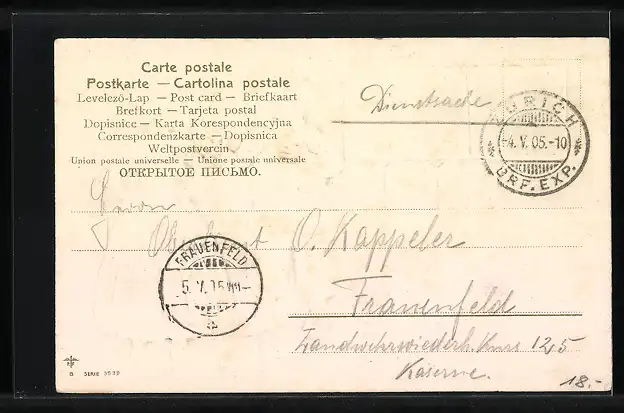 Carte postale
Postkarte — Cartolina postale
Levelezö-Lap — Post card — Briefkaart
Brefkort — Tarjeta postal
Dopisnice — Karta Korespondencyjna
Correspondenzkarte — Dopisnica
Weltpostverein
Union postale universelle — Unione postale universale
ОТКРЫТОЕ ПИСЬМО.
Dienstsache
ZÜRICH
4. V. 05.-10
BRF. EXP.
Herrn
O. Kappeler
FRAUENFELD
5. V. 05
Frauenfeld
Landwehrwiederh. Kurs 125
Kaserne.
18.-
SERIE